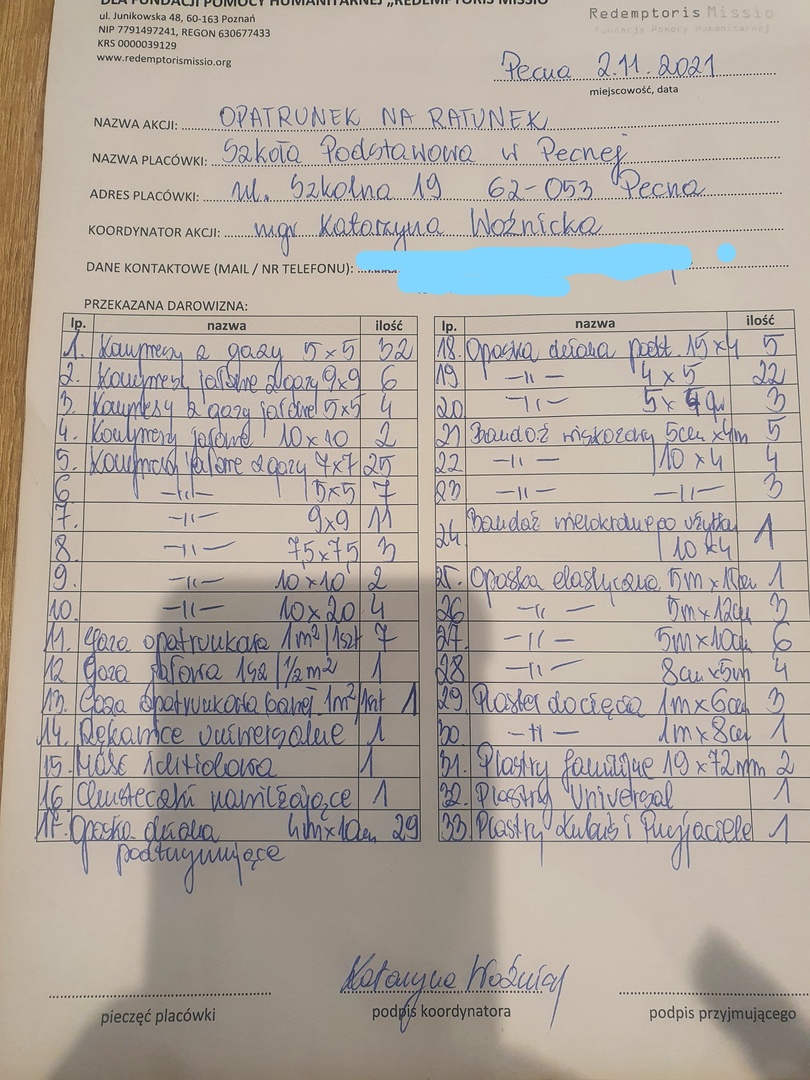 DLA FUNDACJI POMOCY HUMANITARNEJ „REDEMPTORIS MISSIO"
ul. Junikowska 48, 60-163 Poznań
NIP 7791497241, REGON 630677433
KRS 0000039129
www.redemptorismissio.org
Redemptoris Missio
Fundacja Pomocy Humanitarnej
Pecna 2.11.2021
miejscowość, data
NAZWA AKCJI: OPATRUNEK NA RATUNEK
NAZWA PLACÓWKI: Szkoła Podstawowa w Pecnej
ADRES PLACÓWKI: ul. Szkolna 19 62-053 Pecna
KOORDYNATOR AKCJI: mgr Katarzyna Woźnicka
DANE KONTAKTOWE (MAIL / NR TELEFONU):
PRZEKAZANA DAROWIZNA:
lp. nazwa ilość
1. Kompresy z gazy 5x5 32
2. Kompresy jałowe z gazy 9x9 6
3. Kompresy z gazy jałowe 5x5 4
4. Kompresy jałowe 10x10 2
5. Kompresy jałowe z gazy 7x7 25
6 -"- 5x5 7
7. -"- 9x9 11
8 -"- 7,5x7,5 3
9. -"- 10x10 2
10. -"- 10x20 4
11. Gaza opatrunkowa 1m²/1szt 7
12 Gaza jałowa 1sz/½m² 1
13. Gaza opatrunkowa 1m² 1szt 1
14. Rękawice uniwersalne 1
15. Maść ichtiolowa 1
16. Chusteczki nawilżające 1
17. Opaska dziana 4mx10cm 29
podtrzymujące
lp. nazwa ilość
18. Opaska dziana podt. 15x4 5
19 -"- 4x5 22
20 -"- 5x 3
21 Bandaż wiskozowy 5cm x4m 5
22 -"- 10x4 4
23 -"- -"- 3
24 Bandaż wielokrotnego użytku 1
10x4
25. Opaska elastyczna 5m x 1
26 -"- 5m x12cm 3
27 -"- 5m x10cm 6
28 -"- 8cm x5m 4
29. Plaster do cięcia 1m x6cm 3
30. -"- 1m x8cm 1
31. Plastry familijne 19x72mm 2
32. Plastry Universal 1
33. Plastry Kubuś i Przyjaciele 1
Katarzyna Woźnicka
pieczęć placówki
podpis koordynatora
podpis przyjmującego